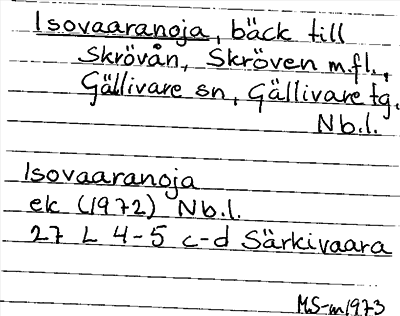 Isovaaranoja, bäck till
Skrövån, Skröven m.fl.,
Gällivare sn, Gällivare tg.
Nb.l.
Isovaaranoja
ek (1972) Nb.l.
27 L 4-5 c-d Särkivaara
MS-m1973